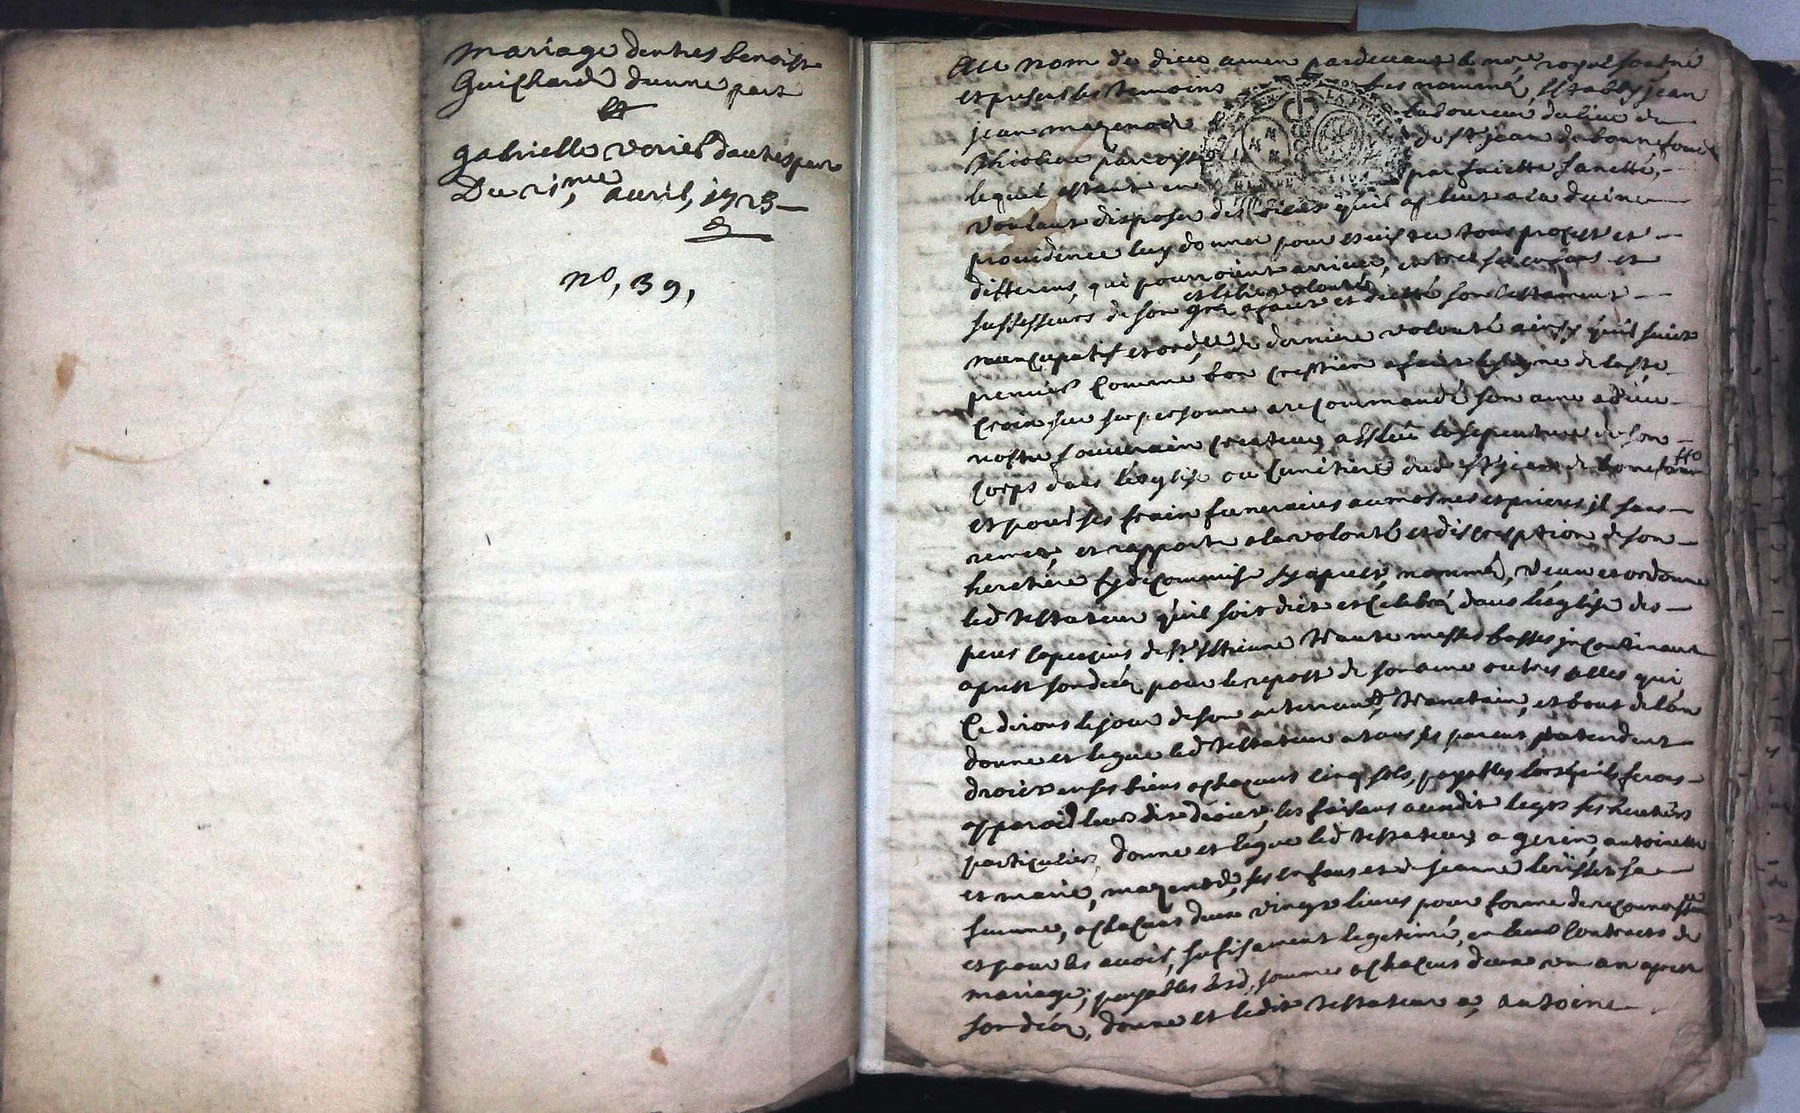 mariage dentres benoist
Guichard dune part
et
gabrielle veries dautres part
Du 21me avril, 1723
no, 39,
Au nom de dieu amen pardevant le nore royal soubné
et presens les temoins bas nommés, estably jean
jean mazenod laboureur du lieu de
Thiolieu parroisse de st jean de bonnefont
lequel estant en parfaiette santtté,
voulant disposer des biens quil at pleut a la divine
providence luy donner pour esviter tous proces et
differens, qui pourroient arriver, entre ses enfans et
et libre volonté
successeurs de son gré a faict et dicté son testament
nuncupatif et ordce de derniere volonté ainsy quil suict
premier comme bon crestien a faict le signe de la ste
croix sur sa personne a recommandé son ame a dieu
nostre souverain createur, a esleu la sepulture de son
corps dans leglise ou cimetiere dud st jean de bonefont
et pour ses frain funeraires aumosnes et prieres il sans
remet, et rapporte a la volonté et discreption de son
heretiere fydecommise sy apres nommée, veut et ordonne
led testateur quil soit dict et celebré dans leglise des
peres capucins de st estienne trante messes basses incontinant
apres son décéz pour le repost de son ame outres celles qui
ce dirons le jour de son enterrement, trantain, et bout de lan
donne et legue led testateur a tous ses parens pretendent
droict en ses biens a chacuns cinq sols, payables lorsquils feront
apparoir leur dit droict, les faisans aud dit leges ses heretiers
particuliers, donne et legue led testateur a gerin, antoinette
et marie, mazenod, ses enfans et de jeanne sa
femme, a chacuns deux vingt livres pour forme de reconnoissance
et pour les avoir, sufisament legetimé, en leurs contracts de
mariage, payables lesd, sommes a chacuns deux un an apres
son décéz, donne et ledit testateur a, antoine